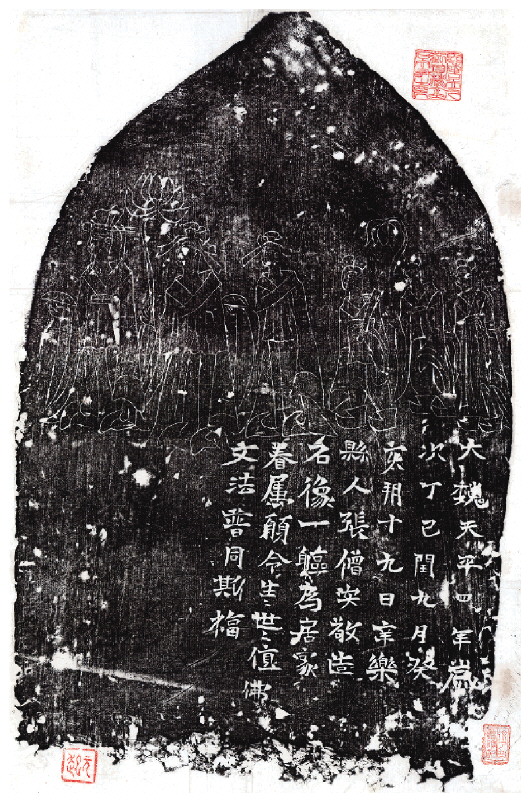 大魏天平四年歲
次丁巳閏九月癸
亥朔十九日辛樂
縣人張僧安敬造
名像一軀為居家
眷属願令生〻世〻值佛
文法普同斯福